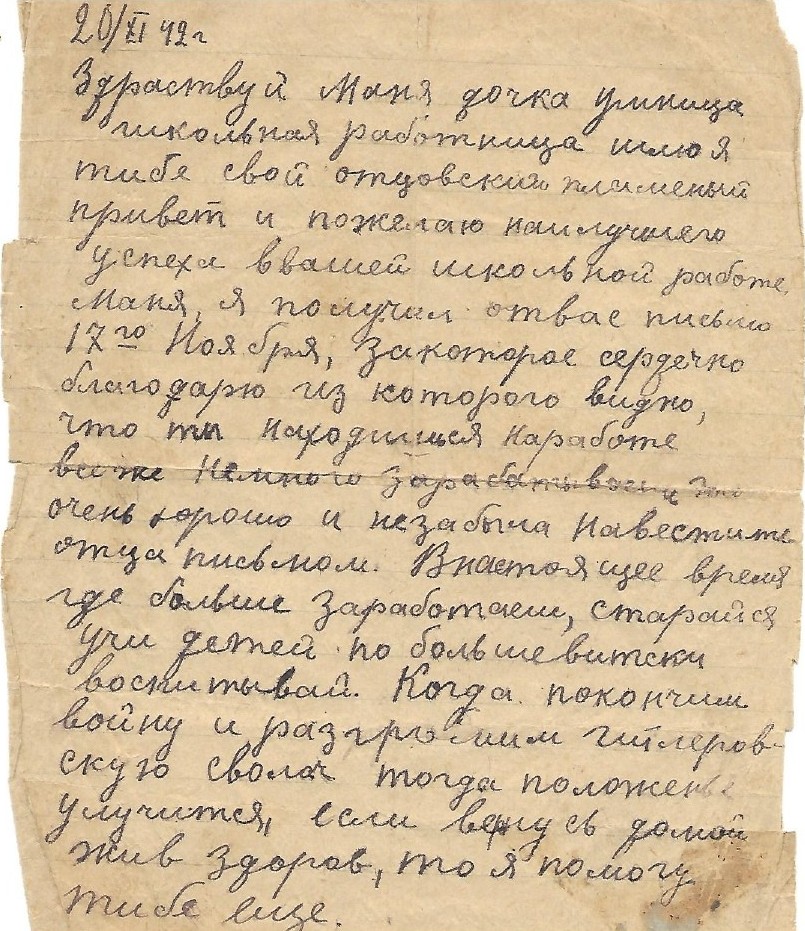 20/XI 42 г
Здраствуй Маня дочка умница
школьная работница шлю я
тибе свой отцовский пламеный
привет и пожелаю наилучшего
успеха ввашей школьной работе,
Маня, я получил отвас письмо
17го Ноября, закоторое сердечно
благодарю из которого видно,
что ты находишься наработе
все же немного зарабатываешь
очень хорошо и незабыла навестить
отца письмом. Внастоящее время
где больше заработаеш, старайся
учи детей по большевитски
воспитывай. Когда покончим
войну и разгромим гитлеров-
скую сволач тогда положенье
улучится, если вернусь домой
жив здоров, то я помогу
тибе еще.